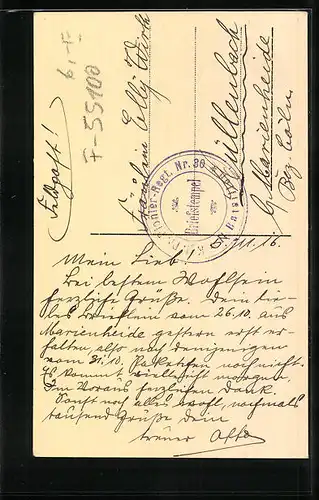 Feldpost!
6.-F
F-55100
Fräulein Elly Wirth
Müllenbach
b/ Marienheide
Bez. Cöln
Pionier-Regt. Nr. 30
Briefstempel
5.11.16.
Mein Lieb!
Bei bestem Wohlsein
herzliche Grüße. Dein lie-
bes Brieflein vom 26.10. aus
Marienheide gestern erst er-
halten, also nach demjenigen
vom 31.10. Paketchen noch nicht.
Es kommt vielleicht morgen.
Im Voraus herzlichen Dank.
Sonst noch alles wohl, nochmals
tausend Grüße dein
treuer Otto